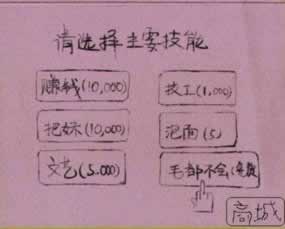 请选择主要技能
赚钱(10,000)
技工(1,000)
把妹(10,000)
泡面(5)
文艺(5.000)
毛都不会(免费
商城